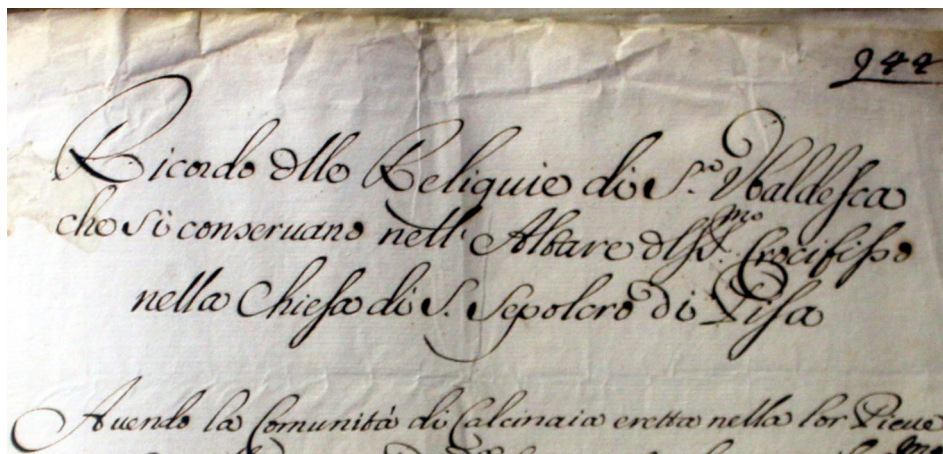 944
Ricordo dlle Reliquie di S.ª Ubaldesca
che si conseruano nell' Altare dl SS.mo Crocifisso
nella Chiesa di S. Sepolcro di Pisa
Auendo la Comunità di Calcinaia eretta nella lor Pieue